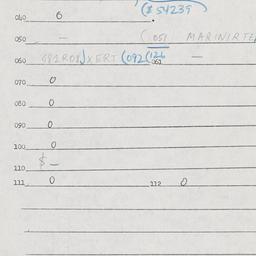 ($54239
040 0
050 — (051 MARINIRTE
060 (092(126 061 —
070 0
080 0
090 0
100 0
$ —
110
111 0 112 0